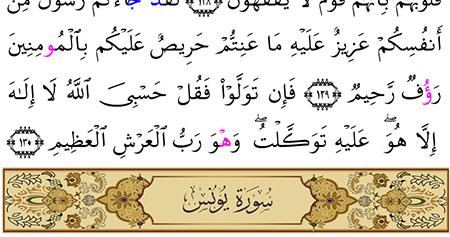 قُلُوبَهُم بِأَنَّهُمْ قَوْمٌ لَّا يَفْقَهُونَ ١٢٨ لَقَدْ جَآءَكُمْ رَسُولٌ مِّنْ
أَنفُسِكُمْ عَزِيزٌ عَلَيْهِ مَا عَنِتُّمْ حَرِيصٌ عَلَيْكُم بِالْمُومِنِينَ
رَؤُفٌ رَّحِيمٌ ١٢٩ فَإِن تَوَلَّوْاْ فَقُلْ حَسْبِيَ اللَّهُ لَا إِلَٰهَ
إِلَّا هُوَ عَلَيْهِ تَوَكَّلْتُ وَهْوَ رَبُّ الْعَرْشِ الْعَظِيمِ ١٣٠
سُورَةُ يُونُسَ